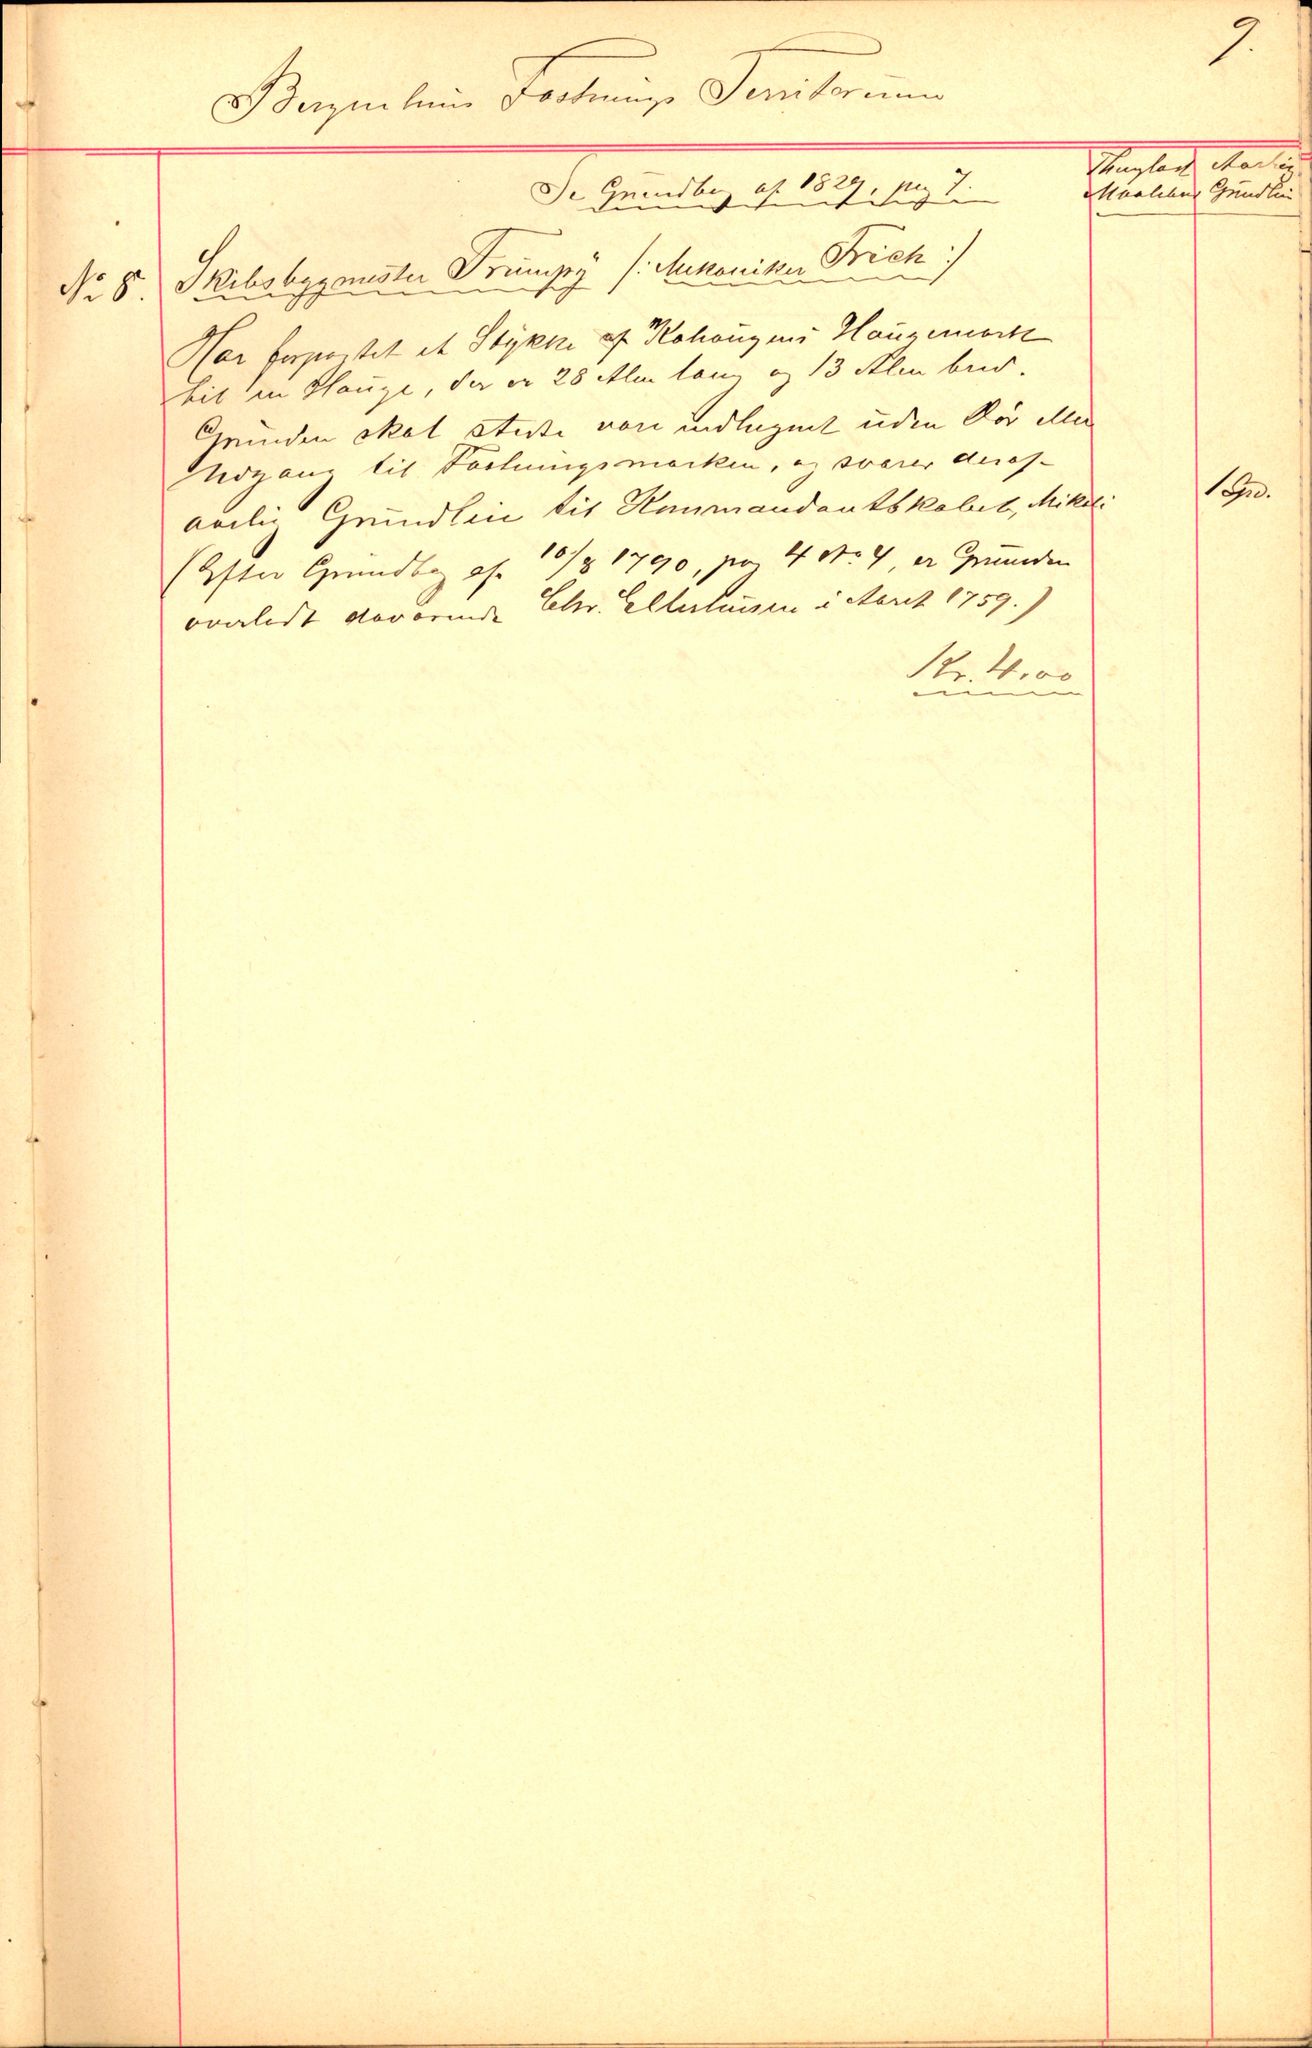 9.
Bergenhuus Fæstnings Territorium
Se Grundbog af 1829, pag 7.
Maaleber Aarlig Grundleie
No 8. Skibsbygmester Trumpÿ /: Mekaniker Frich :/
Har forpagtet et Stykke af Kohaugens Haugemark
til en Hauge, der er 28 Alen lang og 13 Alen bred.
Grunden skal stedse være indhegnet uden Dør eller
Nedgang til Fæstningsmarken, og svarer deraf
aarlig Grundleie til Kommandantskabet, Mikeli 1 Spd.
(Efter Grundbog af 10/8 1790, pag 4 No 4, er Grunden
overladt daværende Chr. Ellerhusen i Aaret 1759.)
Kr. 4.00